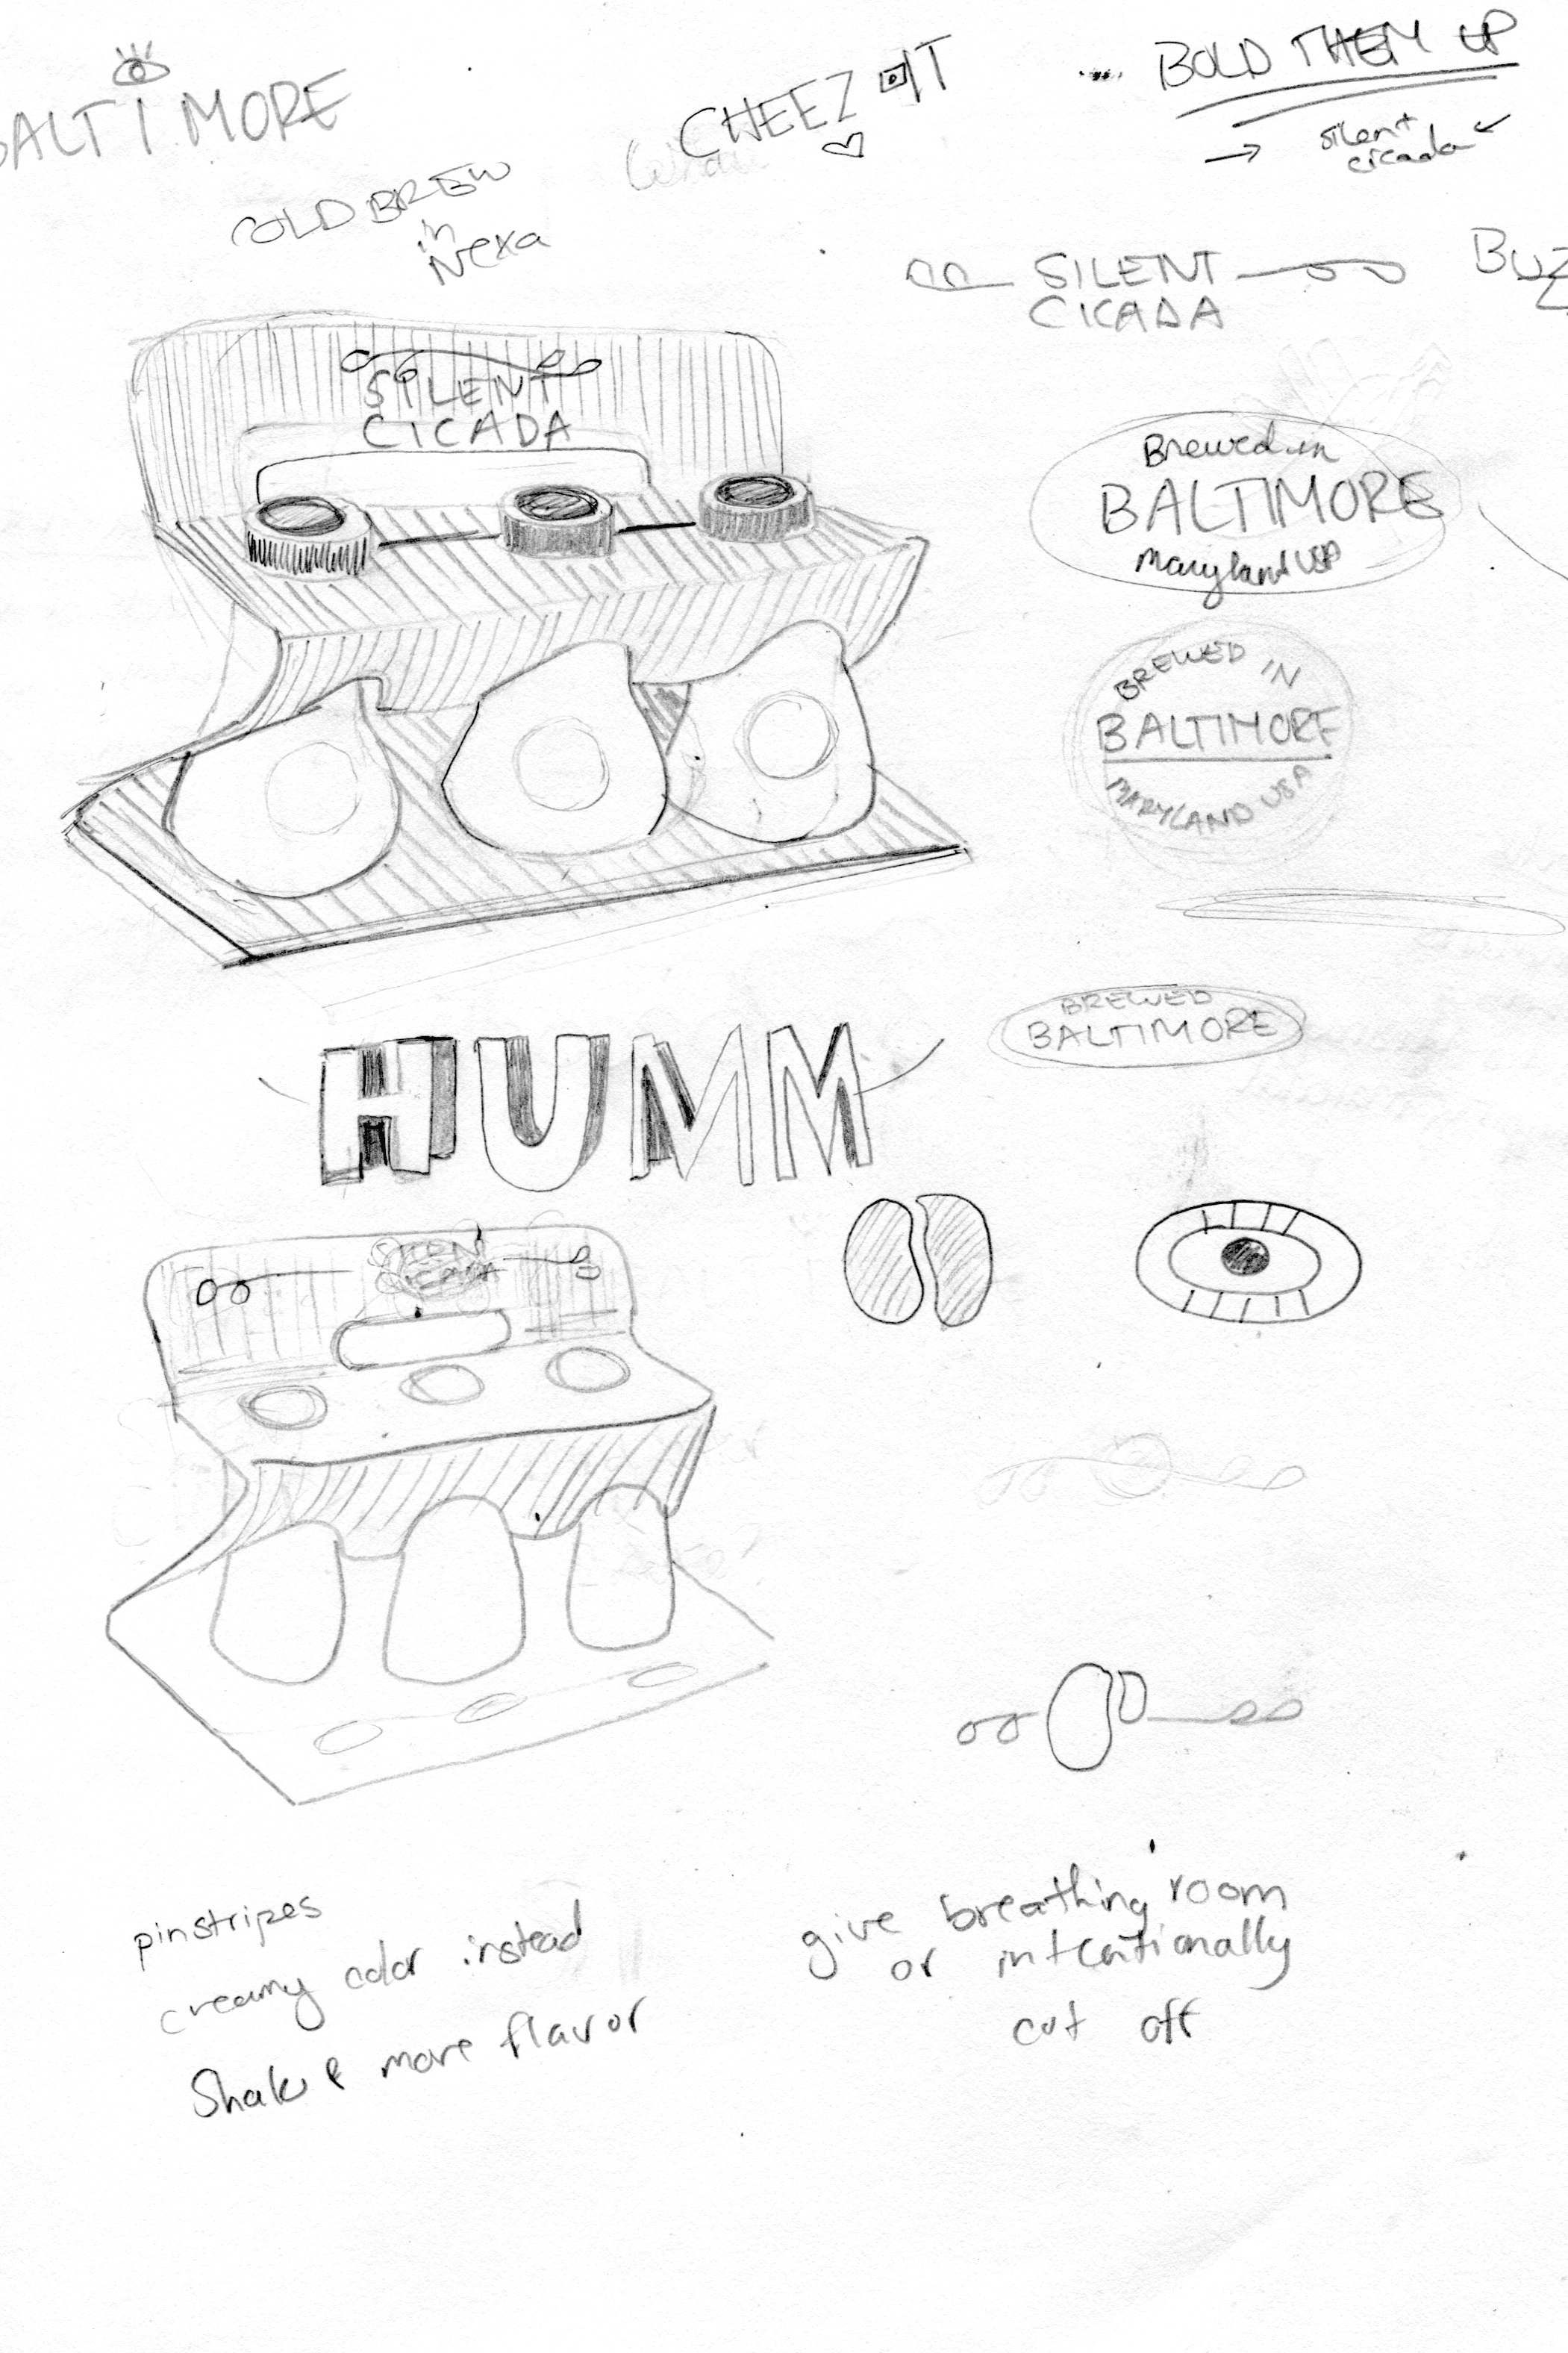 BALTIMORE
COLD BREW
in
Nexa
CHEEZ IT
BOLD THEM UP
silent
cicada
SILENT
CICADA
BUZ
SILENT
CICADA
Brewed in
BALTIMORE
Maryland USA
BREWED IN
BALTIMORE
MARYLAND USA
BREWED
BALTIMORE
HUMM
pinstripes
creamy color instead
Shake more flavor
give breathing room
or intentionally
cut off